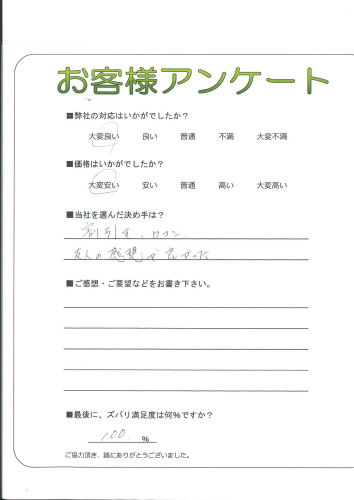 お客様アンケート
■弊社の対応はいかがでしたか?
大変良い 良い 普通 不満 大変不満
■価格はいかがでしたか?
大変安い 安い 普通 高い 大変高い
■当社を選んだ決め手は?
割引き、
友人の感想が良かった
■ご感想・ご要望などをお書き下さい。
■最後に、ズバリ満足度は何%ですか?
100 %
ご協力頂き、誠にありがとうございました。